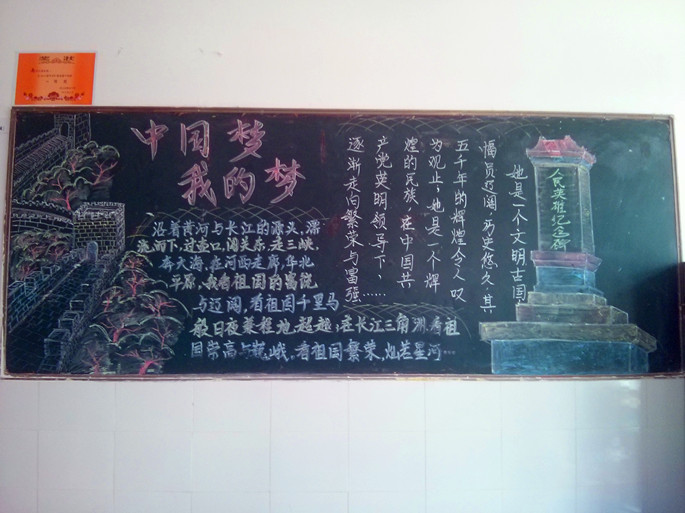 奖状
中国梦
我的梦
沿着黄河与长江的源头,漂
流而下,过壶口,闯关东,走三峡,
奔大海,在河西走廊,华北
平原,我看祖国的富饶
与辽阔,看祖国千里马
般日夜兼程地超越;在长江三角洲,看祖
国崇高与巍峨,看祖国繁荣,灿若星河……
她是一个文明古国
幅员辽阔,历史悠久,其
五千年的辉煌令人叹
为观止,她是一个辉
煌的民族,在中国共
产党英明领导下,
逐渐走向繁荣与富强……
人民英雄纪念碑